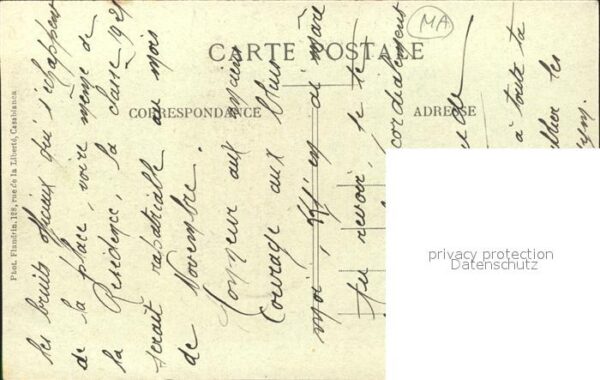 MA
CARTE POSTALE
CORRESPONDANCE
ADRESSE
Phot. Flandrin, 128, rue de la Liberté, Casablanca
les bruits officieux qui s'échappent
de la place, voire même de
la Résidence, la classe 1921
serait rapatriable au mois
de Novembre.
Honneur aux
Courage aux bleus
moi,
Au revoir, je te
cordialement
à toute ta
les
privacy protection
Datenschutz